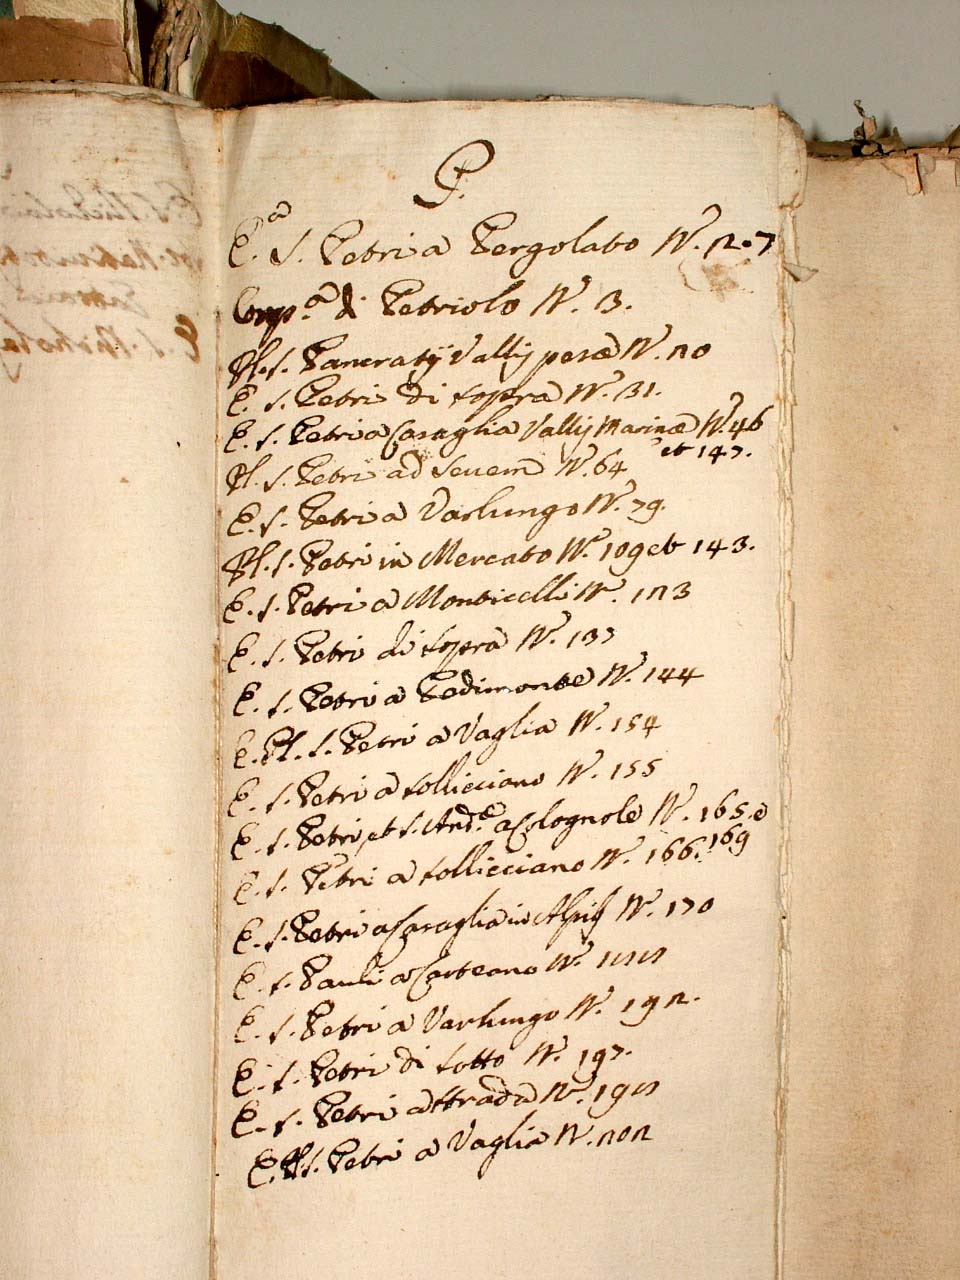 P.
E.a S. Petri a Pergolato N. 2.7
Comp.a di Petriolo N. 3.
Pl. S. Pancratij Vallis pesæ N. 20
E. S. Petri di sopra N. 31.
E. S. Petri a Casaglia Vallis Marinæ N. 46
et 147.
Pl. S. Petri ad Sevem N. 64
E. S. Petri a Varlungo N. 79.
Pl. S. Petri in Mercato N. 109 et 143.
E. S. Petri a Monticelli N. 123
E. S. Petri di sopra N. 137
E. S. Petri a Pedimonte N. 144
E. Pl. S. Petri a Vaglia N. 154
E. S. Petri a sollicciano N. 155
E. S. Petri et S. And.e a Colognole N. 165. e
169
E. S. Petri a sollicciano N. 166.
E. S. Petri a Casaglia in Alpib N. 170
E. S. Pauli a N.
E. S. Petri a Varlungo N. 192.
E. S. Petri di sotto N. 197.
E. S. Petri a strada N. 198
E. Pl. S. Petri a Vaglia N. 202